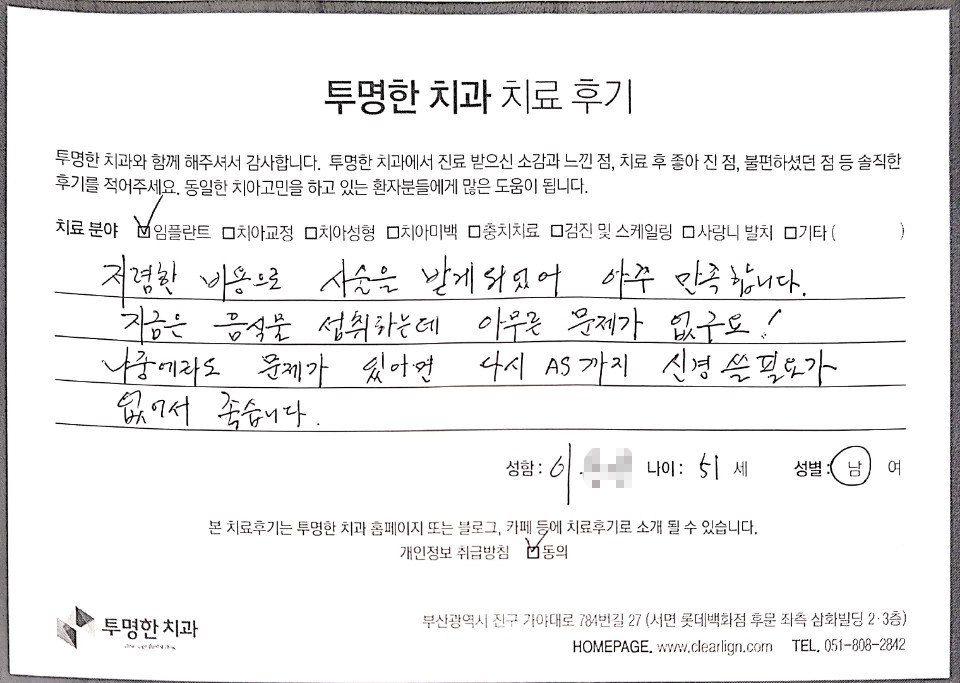 투명한 치과 치료 후기
투명한 치과와 함께 해주셔서 감사합니다. 투명한 치과에서 진료 받으신 소감과 느낀 점, 치료 후 좋아 진 점, 불편하셨던 점 등 솔직한
후기를 적어주세요. 동일한 치아고민을 하고 있는 환자분들에게 많은 도움이 됩니다.
치료 분야 ☑임플란트 □치아교정 □치아성형 □치아미백 □충치치료 □검진 및 스케일링 □사랑니 발치 □기타 ( )
저렴한 비용으로 시술을 받게 되었어 아주 만족합니다.
지금은 음식물 섭취하는데 아무른 문제가 없구요!
나중에라도 문제가 있아면 다시 AS까지 신경 쓸 필요가
없어서 좋습니다.
성함 : 이. 나이 : 51 세 성별 : 남 여
본 치료후기는 투명한 치과 홈페이지 또는 블로그, 카페 등에 치료후기로 소개 될 수 있습니다.
개인정보 취급방침 ☑동의
투명한 치과
부산광역시 진구 가야대로 784번길 27 (서면 롯데백화점 후문 좌측 삼화빌딩 2·3층)
HOMEPAGE. www.clearlign.com TEL. 051-808-2842